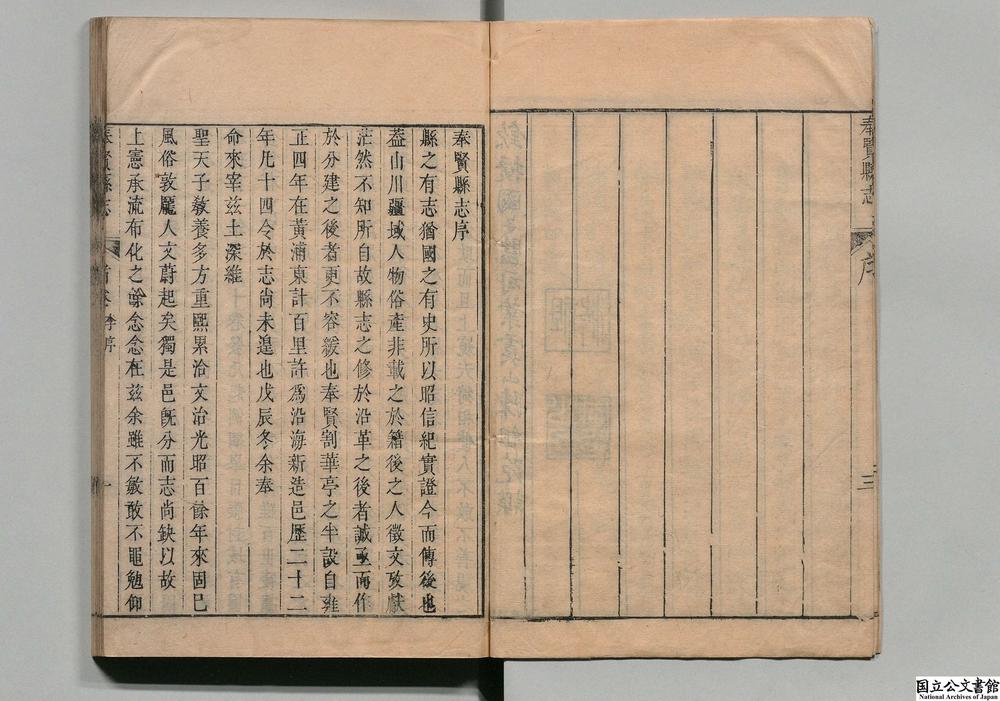 奉賢縣志
序
三
奉賢縣志序
縣之有志猶國之有史所以昭信紀實證今而傳後也
葢山川疆域人物俗產非載之於籍後之人徵文攷獻
茫然不知所自故縣志之修於沿革之後者誠亟而作
於分建之後者更不容緩也奉賢割華亭之半設自雍
正四年在黃浦東計百里許爲沿海新造邑歷二十二
年凡十四令於志尚未遑也戊辰冬余奉
命來宰兹土深維
聖天子敎養多方重熙累洽文治光昭百餘年來固已
風俗敦龐人文蔚起矣獨是邑旣分而志尚缺以故
上憲承流布化之餘念念在兹余雖不敏敢不黽勉仰
奉賢縣志
首卷 序
一
国立公文書館
National Archives of Japan